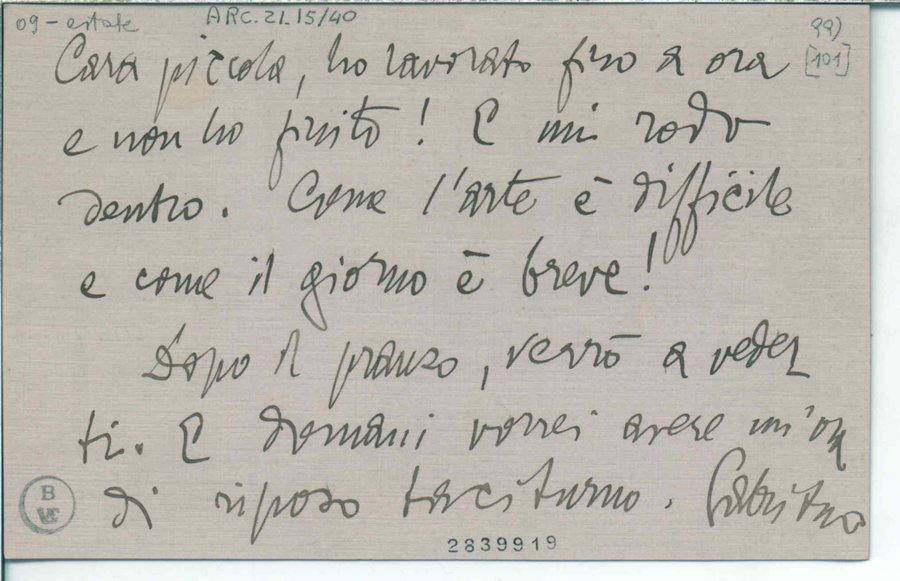 09 - estate ARC.21.15/40 99)
[101]
Cara piccola, ho lavorato fino a ora
e non ho finito! E mi rodo
dentro. Come l'arte è difficile
e come il giorno è breve!
Dopo il pranzo, verrò a veder
ti. E domani vorrei avere un'ora
di riposo taciturno.
B
2839919